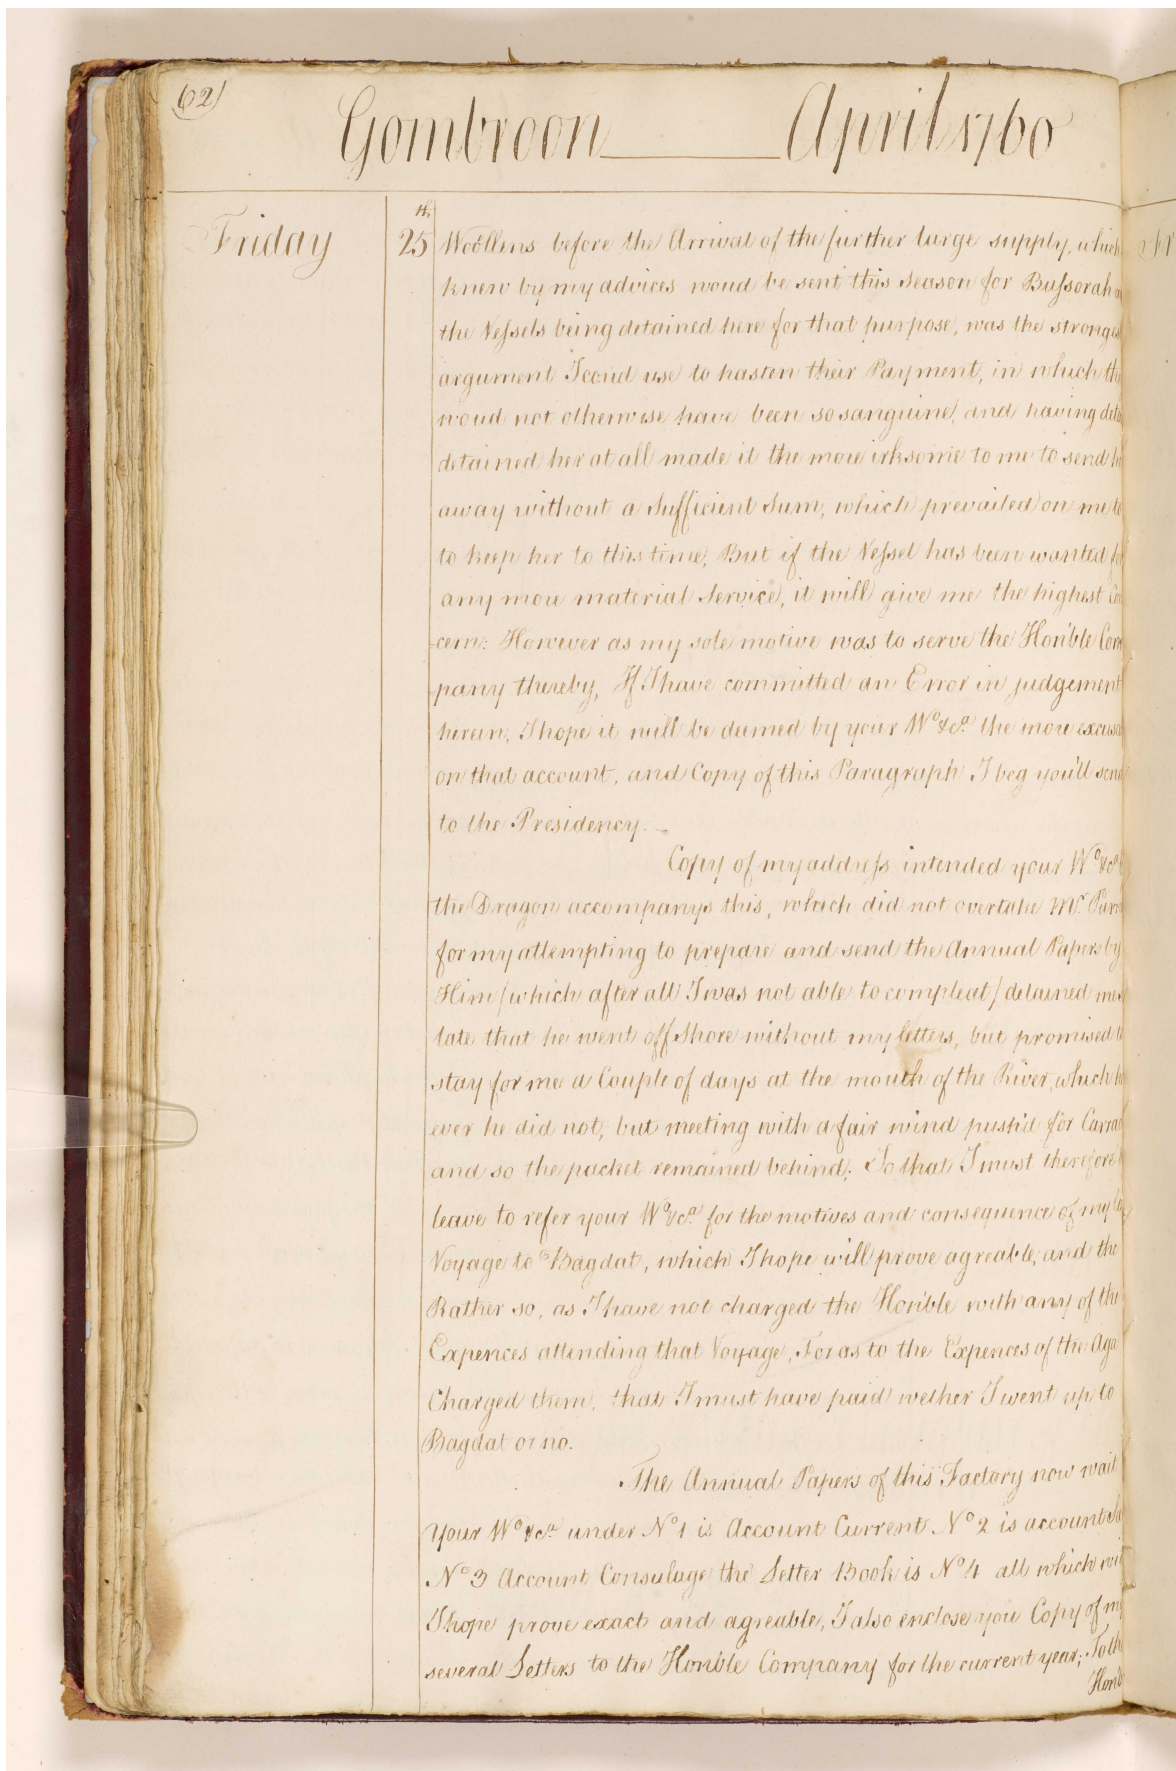 62
Gombroon April 1760
Friday
25th. Woollens before the Arrival of the further large supply, which
knew by my advices woud be sent this Season for Bussorah
the Vessels being detained here for that purpose, was the strongest
argument I coud use to hasten their Payment, in which they
woud not otherwise have been so sanguine, and having
detained her at all made it the more irksome to me to send her
away without a Sufficient Sum, which prevailed on me to
to keep her to this time; But if the Vessel has been wanted for
any more material Service, it will give me the highest Con
-cern: However as my sole motive was to serve the Honble Com
pany thereby, If I have committed an Error in judgement
herein, I hope it will be deemed by your Wo. &ca. the more
on that account, and Copy of this Paragraph I beg you'll send
to the Presidency.
Copy of my address intended your Wo. &ca.
the Dragon accompanys this, which did not overtake Mr.
for my attempting to prepare and send the Annual Papers by
Him / which after all I was not able to compleat / detained me
late that he went off Shore without my letters, but promised to
stay for me a Couple of days at the mouth of the River, which
ever he did not, but meeting with a fair wind push'd for
and so the packet remained behind; So that I must therefore
leave to refer your Wo. &ca. for the motives and consequence of my
Voyage to Bagdat, which I hope will prove agreable, and the
Rather so, as I have not charged the Honble with any of the
Expences attending that Voyage, For as to the Expences of the Aga
Charged them, that I must have paid wether I went up to
Bagdat or no.
The Annual Papers of this Factory now wait
Your Wo. &ca. under No 1 is Account Current No 2 is account
No 3 Account Consulage the Letter Book is No 4 all which will
I hope prove exact and agreable, I also enclose you Copy of my
several Letters to the Honble Company for the current year; To the
Honble